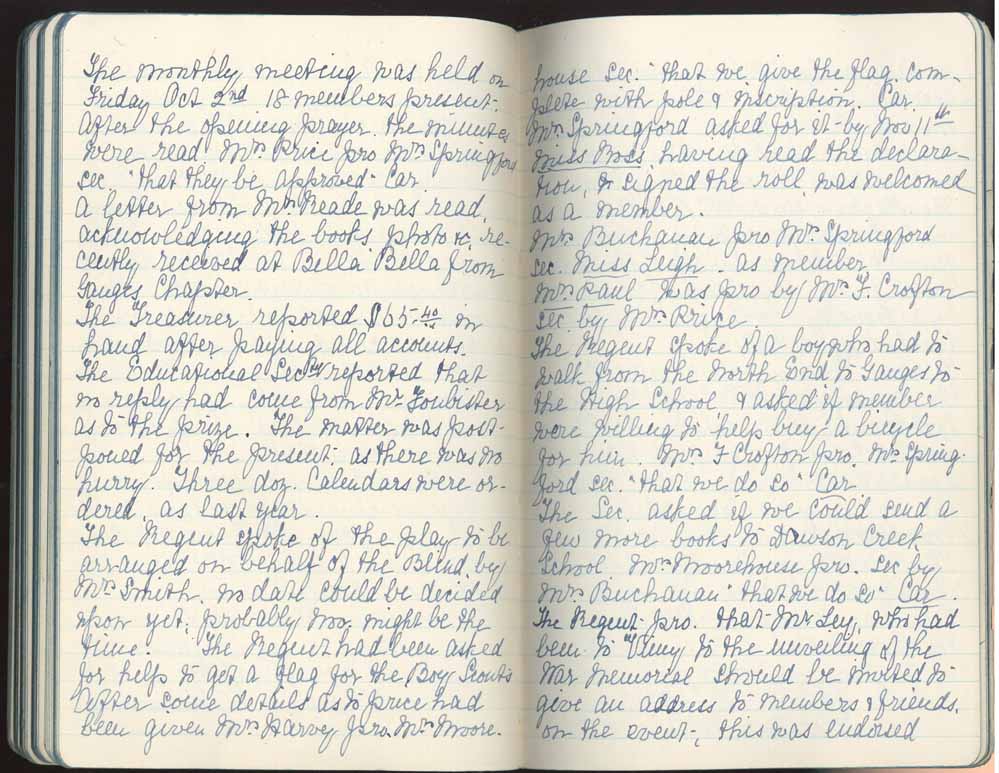 The monthly meeting was held on
Friday Oct 2nd 18 members present.
After the opening prayer. the minutes
were read. Mrs Price pro Mrs Springford
sec. "that they be approved" Car.
A letter from Mrs Reade was read,
acknowledging the books, photo &c, re-
cently received at Bella Bella from
Ganges Chapter.
The Treasurer reported $65.40 in
hand after paying all accounts.
The Educational Secty reported that
no reply had come from Mr Foubister
as to the prize. The matter was post-
poned for the present, as there was no
hurry. Three doz. Calendars were or-
dered, as last year.
The Regent spoke of the play to be
arranged on behalf of the Blind, by
Mrs Smith, no date could be decided
upon yet, probably Nov. might be the
time. The Regent had been asked
for help to get a flag for the Boy Scouts
After some details as to price had
been given Mrs Harvey pro. Mrs Moore-
house sec. "that we give the flag, com-
plete with pole & inscription. Car.
Mrs Springford asked for it by Nov 11th
Miss Moss, having read the declara-
tion, & signed the roll, was welcomed
as a member.
Mrs Buchanan pro Mrs Springford
sec. Miss Leigh. as member
Mrs Paul was pro by Mrs F. Crofton
sec. by Mrs Price.
The Regent spoke of a boy who had to
walk from the North End to Ganges to
the High School & asked if member
were willing to help buy a bicycle
for him. Mrs F Crofton pro. Mrs Spring-
ford sec. "that we do so" Car.
The Sec. asked if we could send a
few more books to Dawson Creek
School Mrs Moorehouse pro. sec by
Mrs Buchanan "that we do so" Car.
The Regent pro. that Mr Ley, who had
been to "Vimy to the unveiling of the
War Memorial should be invited to
give an address to members & friends.
on the event, this was endorsed